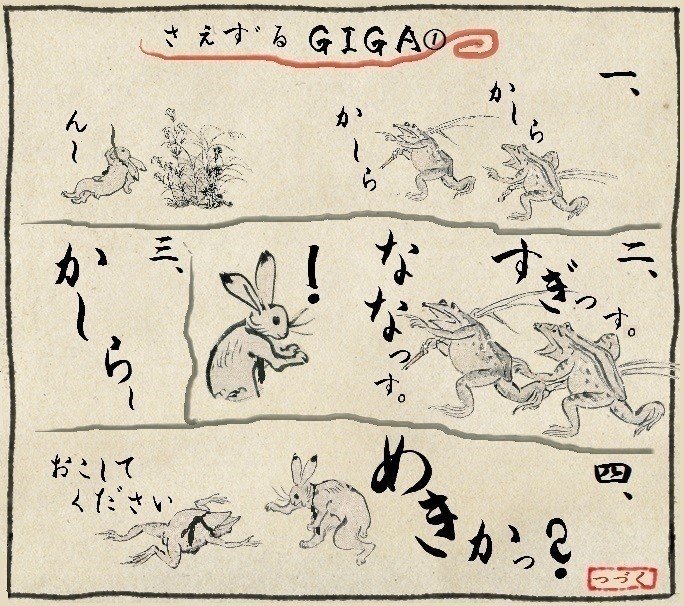 さえずるGIGA①
一、
かしら
かしら
んー
二、
すぎっす。
ななっす。
！
三、
かしらー
四、
めきかっ？
おこして
ください
つづく